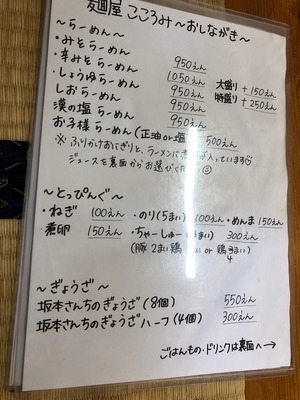 麺屋 こころみ ~おしながき~
~らーめん~
・みそらーめん 950えん
・辛みそらーめん 1050えん 大盛り +150えん
・しょうゆらーめん 950えん 特盛り +250えん
しおらーめん 950えん
漢の塩らーめん 950えん
お子様らーめん (正油or塩) 500えん
※ ふりかけおにぎりと、ラーメンに が入っています
ジュースを裏面からお選びください
~とっぴんぐ~
・ねぎ 100えん ・のり(5まい) 100えん ・めんま 150えん
煮卵 150えん ・ちゃーしゅー( まい) 300えん
(豚2まい鶏 まい or 鶏 まい)
4
~ぎょうざ~
坂本さんちのぎょうざ (8個) 550えん
坂本さんちのぎょうざハーフ(4個) 300えん
ごはんもの・ドリンクは裏面へ→